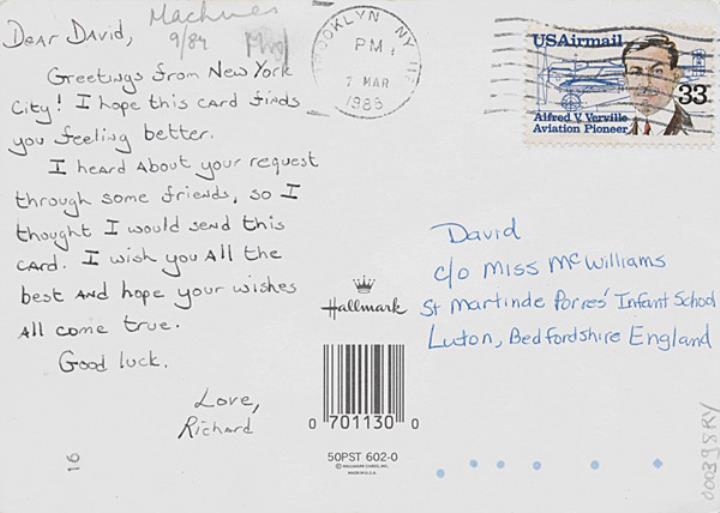 Machines
9/84
Dear David,
Greetings from New York
City! I hope this card finds
you feeling better.
I heard about your request
through some friends, so I
thought I would send this
card. I wish you all the
best and hope your wishes
all come true.
Good luck.
Love,
Richard
16
BROOKLYN NY 112
PM
7 MAR
1986
USAirmail
33
Alfred V. Verville
Aviation Pioneer
David
c/o Miss McWilliams
St Martinde Porres' Infant School
Luton, Bedfordshire England
Hallmark
0 701130 0
50PST 602-0
© HALLMARK CARDS, INC.
MADE IN U.S.A.
000398RY